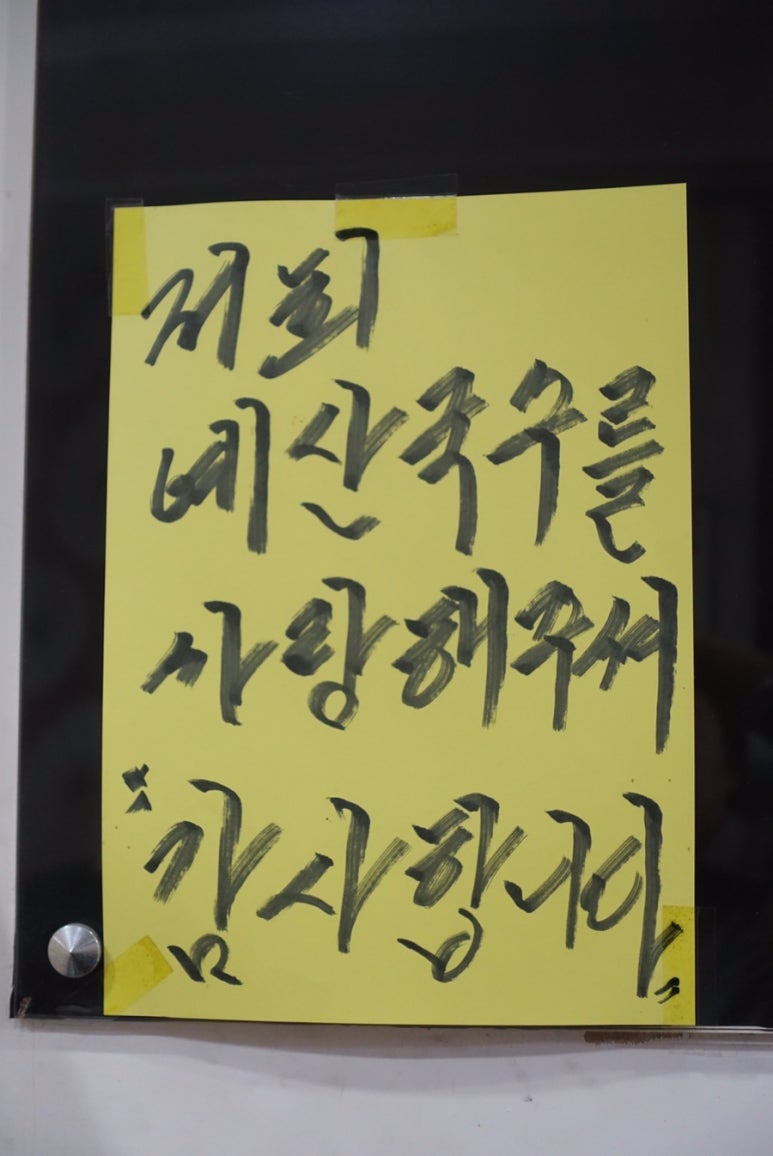 저희
예산국수를
사랑해주셔
"감사합니다"